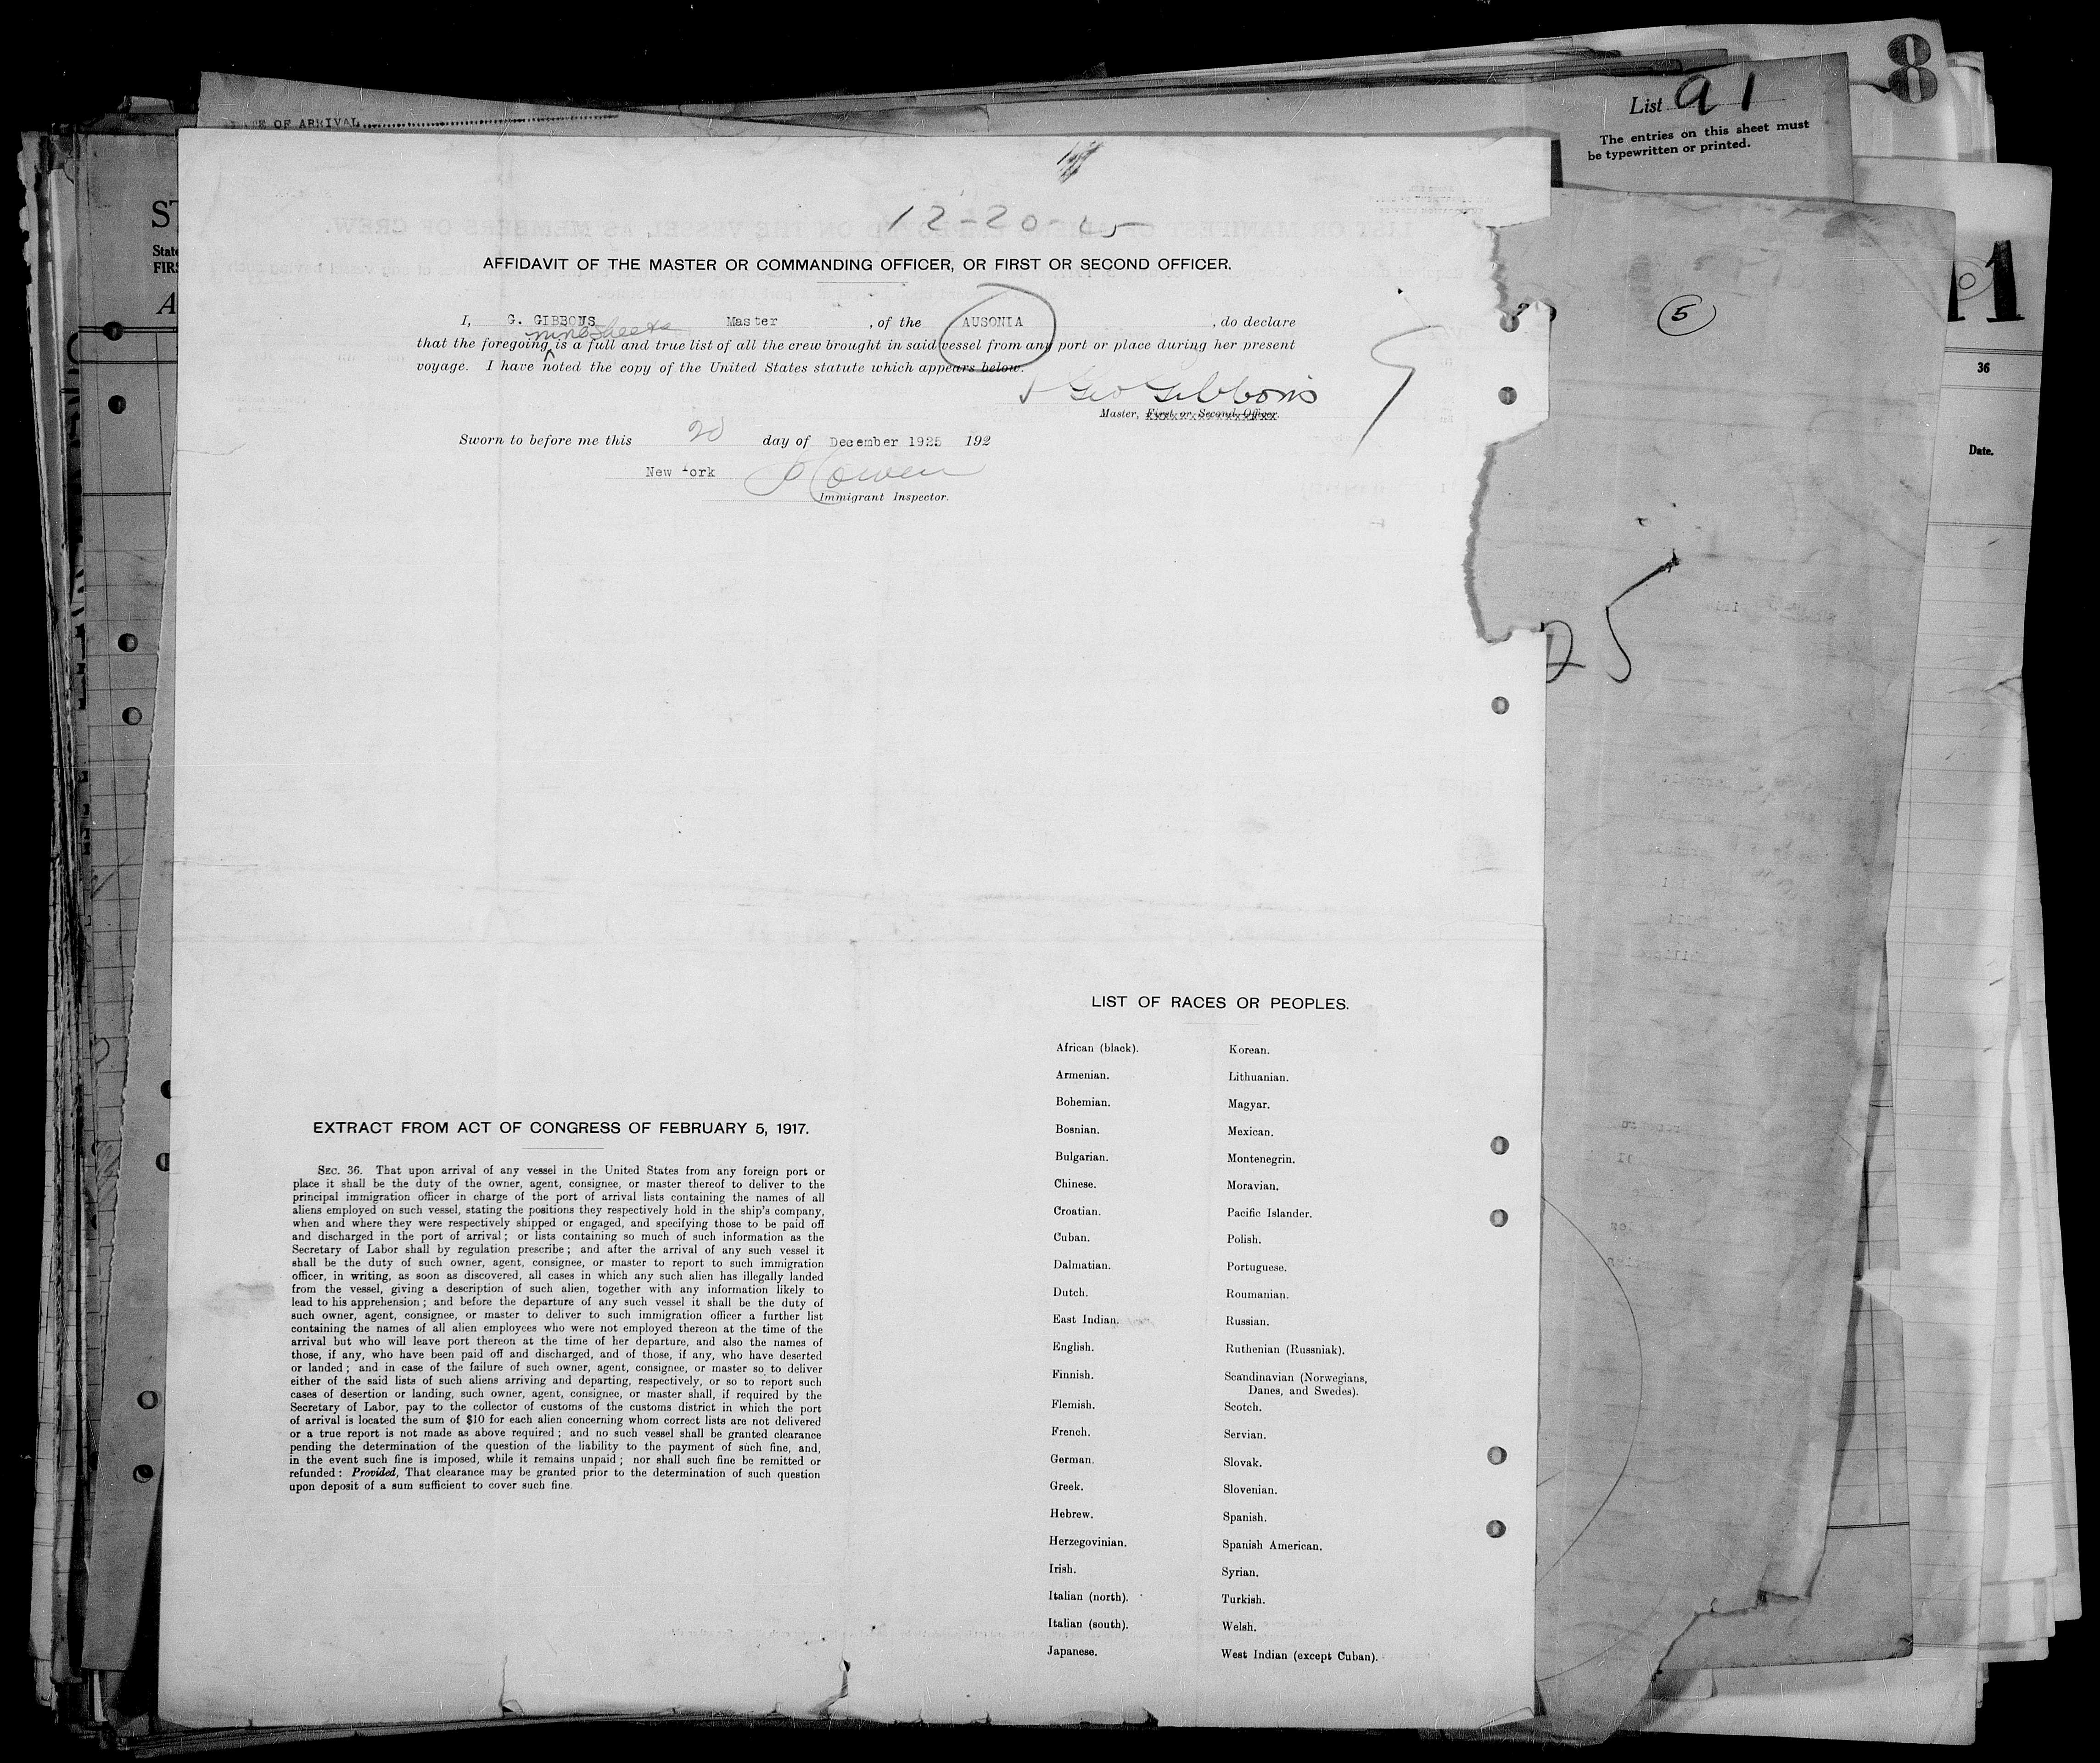 OF ARRIVAL
List 91
The entries on this sheet must
be typewritten or printed.
8
12-20-25
AFFIDAVIT OF THE MASTER OR COMMANDING OFFICER, OR FIRST OR SECOND OFFICER.
I, G. GIBBONS Master, of the AUSONIA, do declare
nine sheets
that the foregoing is a full and true list of all the crew brought in said vessel from any port or place during her present
voyage. I have noted the copy of the United States statute which appears below.
Geo Gibbons
Master, First or Second Officer.
Sworn to before me this 20 day of December 1925 192
New York
Immigrant Inspector.
5
11
36
Date.
25
EXTRACT FROM ACT OF CONGRESS OF FEBRUARY 5, 1917.
SEC. 36. That upon arrival of any vessel in the United States from any foreign port or
place it shall be the duty of the owner, agent, consignee, or master thereof to deliver to the
principal immigration officer in charge of the port of arrival lists containing the names of all
aliens employed on such vessel, stating the positions they respectively hold in the ship's company,
when and where they were respectively shipped or engaged, and specifying those to be paid off
and discharged in the port of arrival; or lists containing so much of such information as the
Secretary of Labor shall by regulation prescribe; and after the arrival of any such vessel it
shall be the duty of such owner, agent, consignee, or master to report to such immigration
officer, in writing, as soon as discovered, all cases in which any such alien has illegally landed
from the vessel, giving a description of such alien, together with any information likely to
lead to his apprehension; and before the departure of any such vessel it shall be the duty of
such owner, agent, consignee, or master to deliver to such immigration officer a further list
containing the names of all alien employees who were not employed thereon at the time of the
arrival but who will leave port thereon at the time of her departure, and also the names of
those, if any, who have been paid off and discharged, and of those, if any, who have deserted
or landed; and in case of the failure of such owner, agent, consignee, or master so to deliver
either of the said lists of such aliens arriving and departing, respectively, or so to report such
cases of desertion or landing, such owner, agent, consignee, or master shall, if required by the
Secretary of Labor, pay to the collector of customs of the customs district in which the port
of arrival is located the sum of $10 for each alien concerning whom correct lists are not delivered
or a true report is not made as above required; and no such vessel shall be granted clearance
pending the determination of the question of the liability to the payment of such fine, and,
in the event such fine is imposed, while it remains unpaid; nor shall such fine be remitted or
refunded: Provided, That clearance may be granted prior to the determination of such question
upon deposit of a sum sufficient to cover such fine.
LIST OF RACES OR PEOPLES.
African (black).
Armenian.
Bohemian.
Bosnian.
Bulgarian.
Chinese.
Croatian.
Cuban.
Dalmatian.
Dutch.
East Indian.
English.
Finnish.
Flemish.
French.
German.
Greek.
Hebrew.
Herzegovinian.
Irish.
Italian (north).
Italian (south).
Japanese.
Korean.
Lithuanian.
Magyar.
Mexican.
Montenegrin.
Moravian.
Pacific Islander.
Polish.
Portuguese.
Roumanian.
Russian.
Ruthenian (Russniak).
Scandinavian (Norwegians,
Danes, and Swedes).
Scotch.
Servian.
Slovak.
Slovenian.
Spanish.
Spanish American.
Syrian.
Turkish.
Welsh.
West Indian (except Cuban).